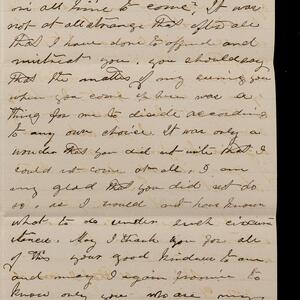 in all time to come. It was
not at all strange that after all
that I have done to offend and
mistreat you, you should say
that the matter of my seeing you
when you come up here was a
thing for me to decide according
to my own choice. It was only a
wonder that you did not write that I
could not come at all. I am
very glad that you did not do
so, as I would not have known
what to do under such circum
stances. May I thank you for all
of this your good kindness to me
and may I again promise to
know only you who are my